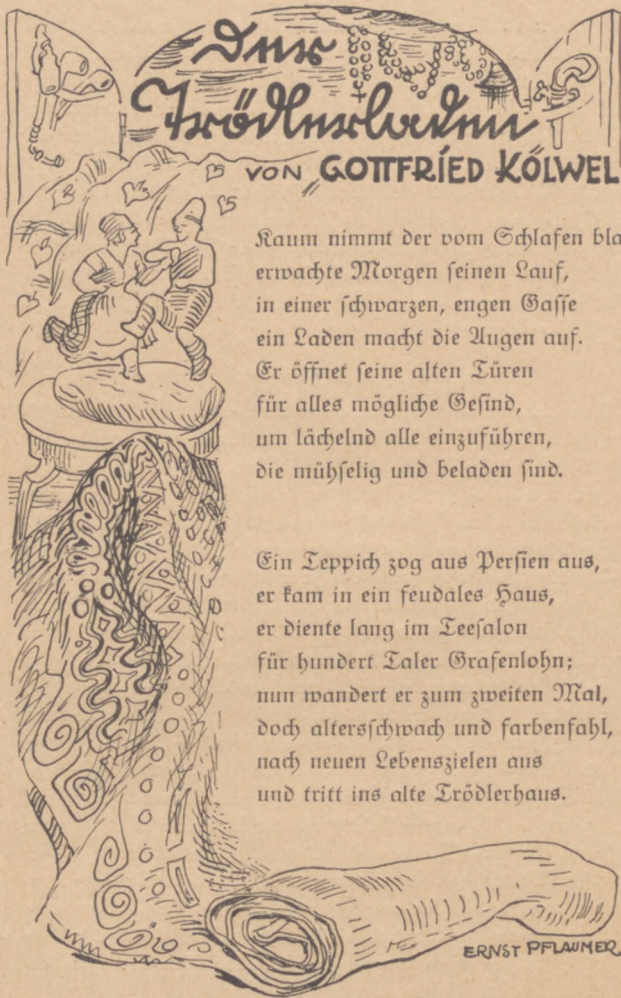 Der
Trödlerladen
VON GOTTFRIED KÖLWEL
Kaum nimmt der vom Schlafen
erwachte Morgen seinen Lauf,
in einer schwarzen, engen Gasse
ein Laden macht die Augen auf.
Er öffnet seine alten Türen
für alles mögliche Gesind,
um lächelnd alle einzuführen,
die mühselig und beladen sind.
Ein Teppich zog aus Persien aus,
er kam in ein feudales Haus,
er diente lang im Teesalon
für hundert Taler Grafenlohn;
nun wandert er zum zweiten Mal,
doch altersschwach und farbenfahl,
nach neuen Lebenszielen aus
und tritt ins alte Trödlerhaus.
ERNST PFLAUMER